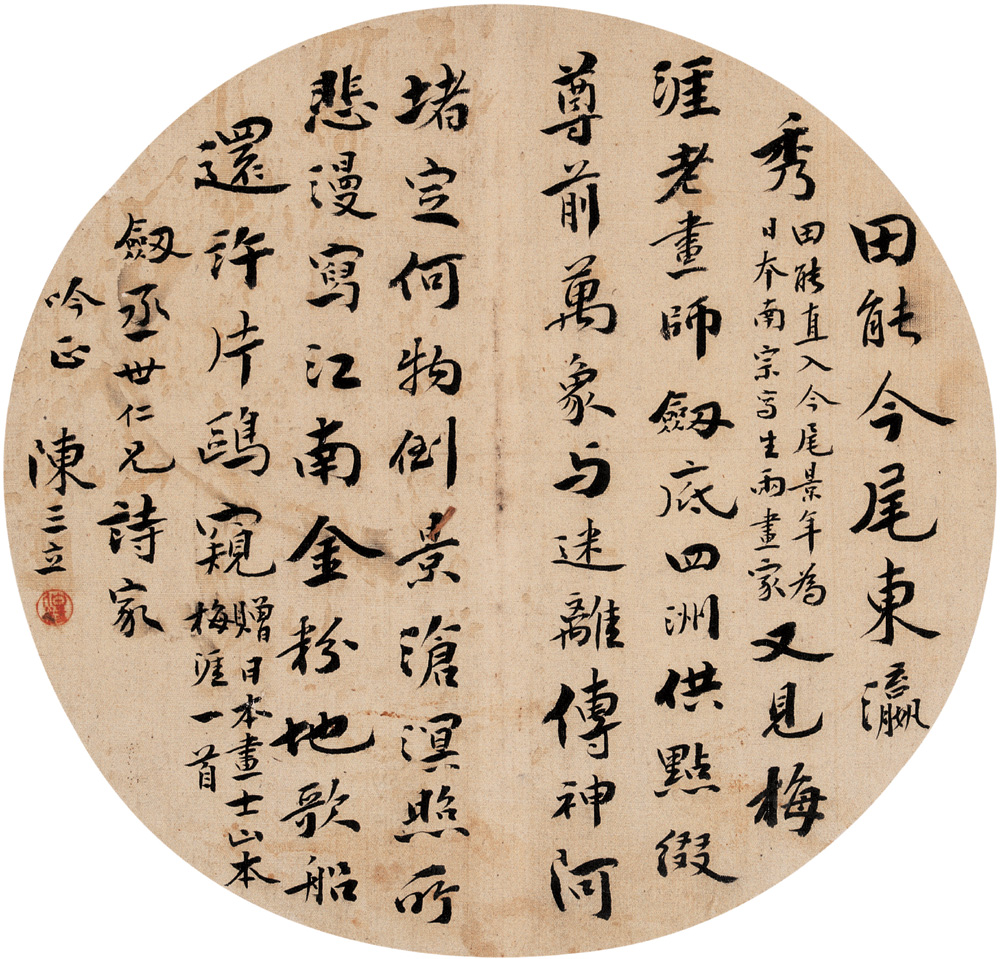 田能今尾東瀛
秀
田能直入今尾景年為
日本南宗寫生兩畫家
又見梅
涯老畫師劔底四洲供點綴
尊前萬象与迷離傳神阿
堵定何物倒景滄溟照所
悲漫寫江南金粉地歌船
還許片鷗窺
贈日本畫士山本
梅涯一首
劔丞世仁兄詩家
吟正 陳三立